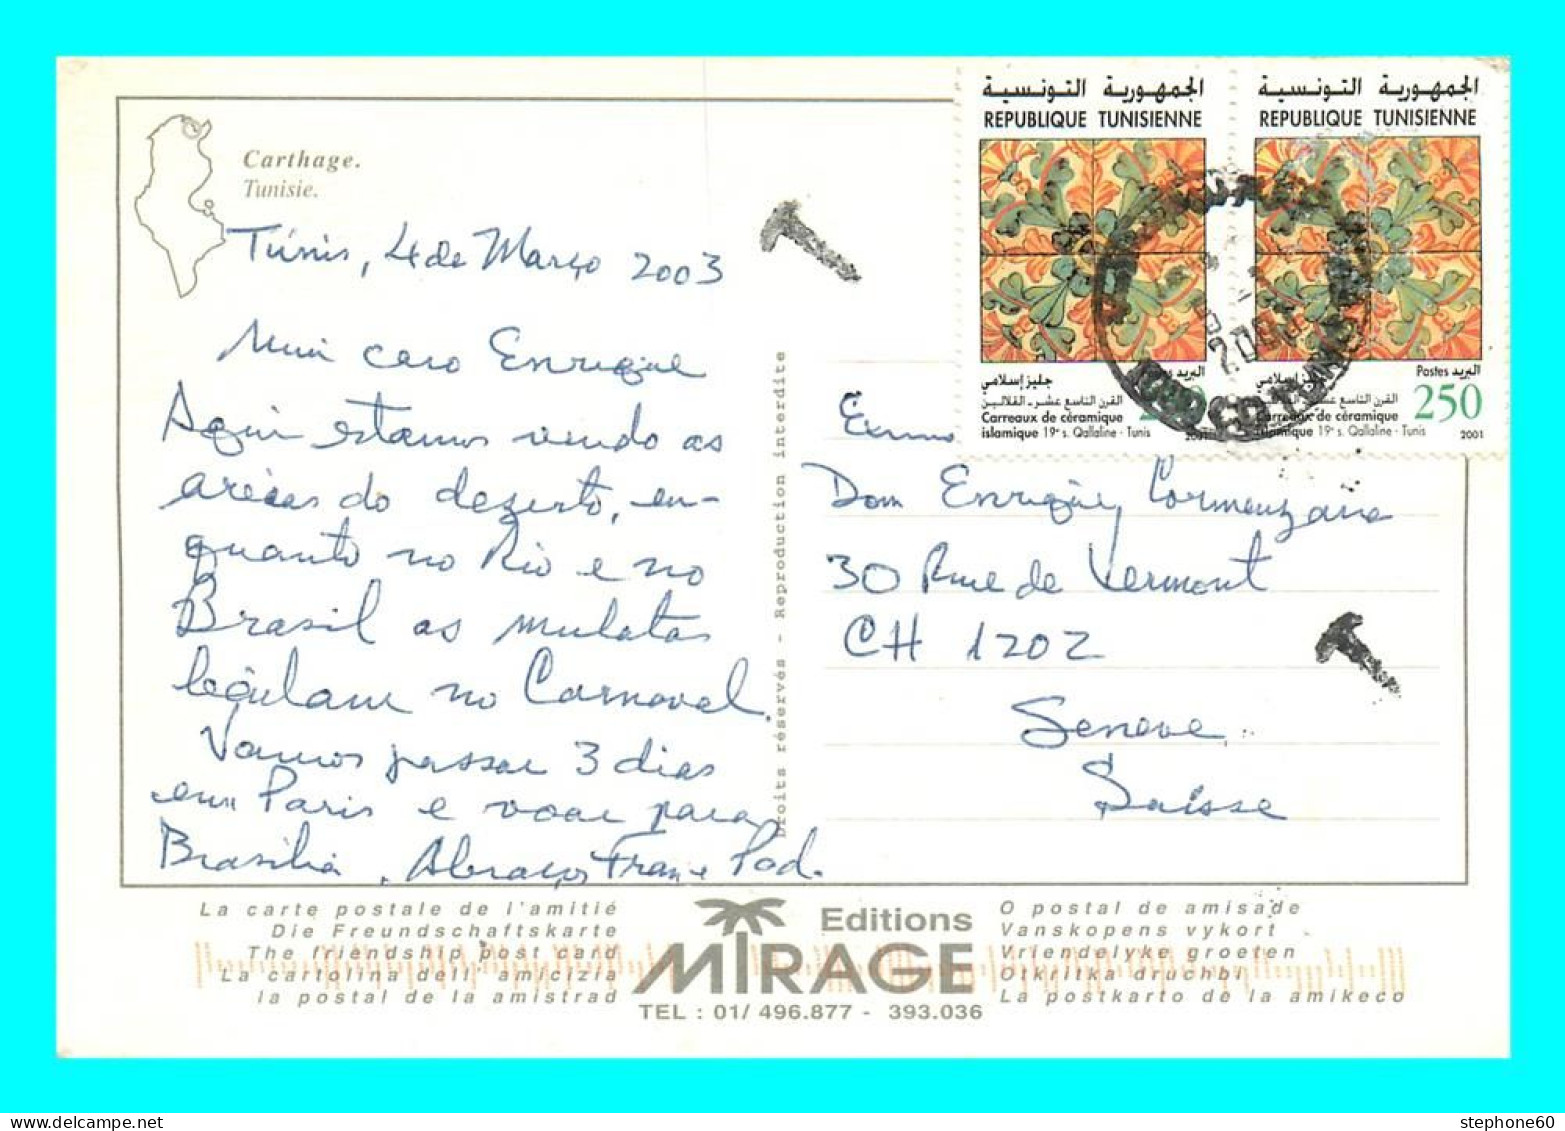 Carthage.
Tunisie.
Túnis, 4 de Março 2003
Meu caro Enrique
Aqui estamos vendo as
areias do dezerto, en-
quanto no Rio e no
Brasil as mulatas
no Carnaval.
Vamos passar 3 dias
em Paris e voar para
Brasilia. Abraços
Droits réservés - Reproduction interdite
الجمهورية التونسية
REPUBLIQUE TUNISIENNE
جليز إسلامي
القرن التاسع عشر - القلالين
Carreaux de céramique
islamique 19e s. Qallaline - Tunis
2001
الجمهورية التونسية
REPUBLIQUE TUNISIENNE
Postes البريد
250
جليز إسلامي
القرن التاسع عشر - القلالين
Carreaux de céramique
islamique 19e s. Qallaline - Tunis
2001
T
Exmo
Dom Enrique
30 Rue de Vermont
CH 1202
Geneve
Suisse
T
La carte postale de l'amitié
Die Freundschaftskarte
The friendship post card
La cartolina dell' amicizia
la postal de la amistrad
Editions
MIRAGE
TEL : 01/ 496.877 - 393.036
O postal de amisade
Vanskopens vykort
Vriendelyke groeten
Otkritka druchbi
La postkarto de la amikeco
stephone60